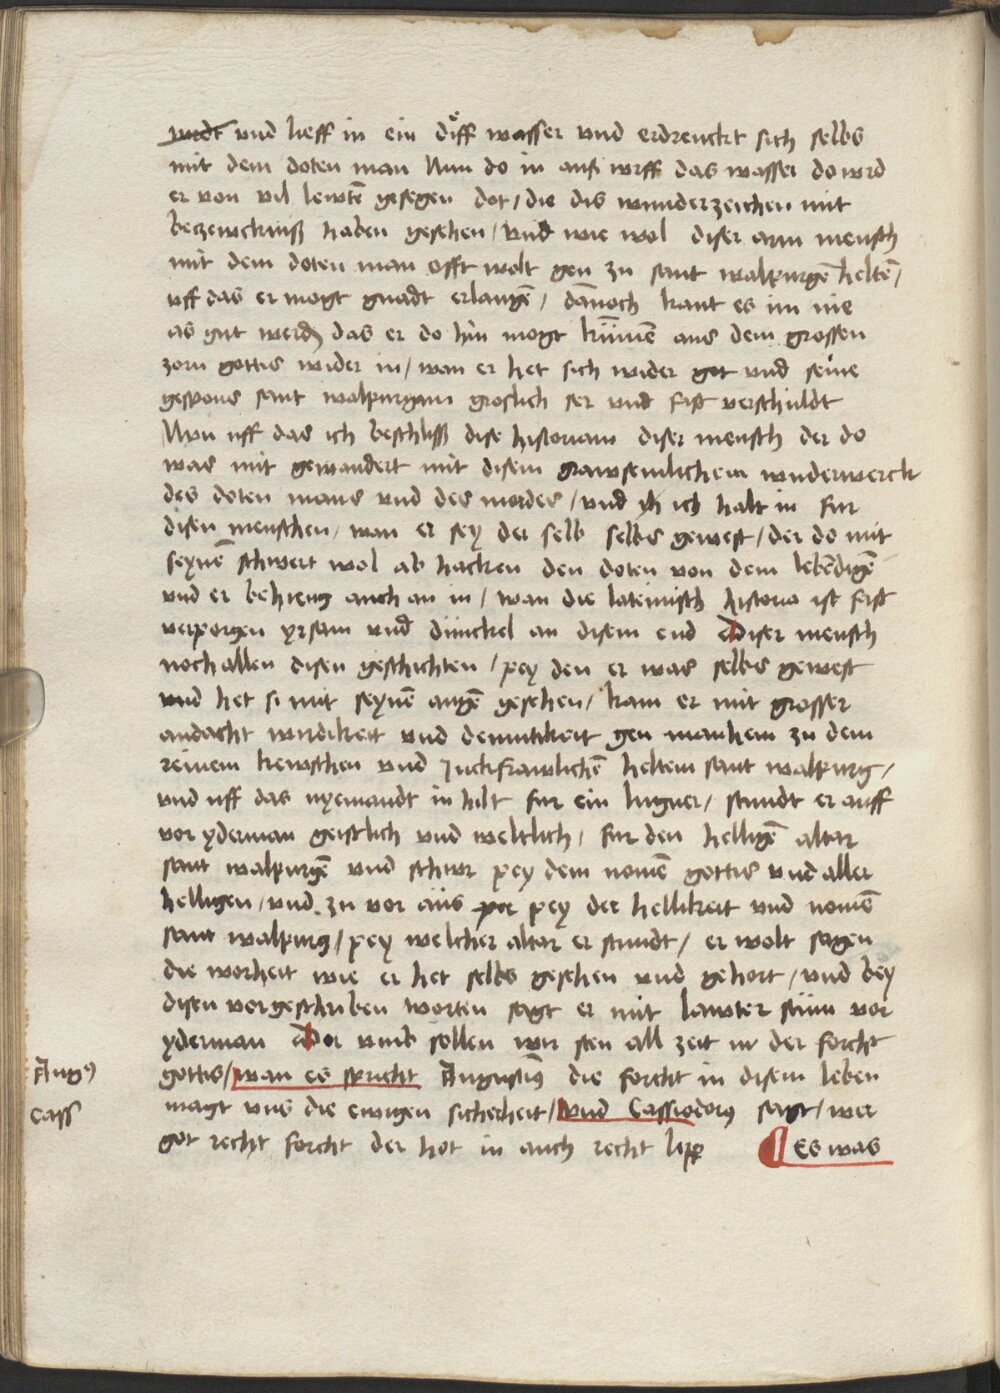 wudt vnd lieff in ein diͤff wasser vnd erdrenckt sich selbs
mit dem doten man Nun do in auß wrff das wasser do wrd
er von vil lewtē gesegen dot / die dis wunderzeichen mit
bezewcknuß haben gesehen / vnd wie wol diser arm mensch
mit dem doten man offt wolt gen zu sant walpurgē heltē /
vff das er mogt gnadt erlangē / dānoch kant es im nie
as gut werdn das er do hin mogt kūmē aus dem grossen
zorn gottis wider in / wan er het sich wider got vnd seine
gespons sant walpurgam groslich ser vnd fist verschuldt
Nvn uff das ich beschliß dise historiam diser mensch der do
was mit gewandert mit disem grawsemlichem wnderwerck
des doten mans vnd des mordes / vnd ich halt in fur
disen menschen / wan er sey der selb selbs gewest / der do mit
seynē schwert wol ab hacken den doten von dem lebēdigē
vnd er behieng auch an in / wan die lateinisch historia ist fist
verporgen yrsam vnd dunckel an disem end diser mensch
noch allen disen geschichten / pey den er was selbs gewest
vnd het si mit seynē augē gesehen / kam er mit grosser
andacht wirdikeit vnd demutikeit gen manhem zu dem
reinem kewschen vnd Juckfrawlichē heltem sant walpurg /
vnd uff das nyemandt in hilt fur ein lugner / stundt er auff
vor yderman geistlich vnd weltlich / fur den helligē altar
sant walpurgē vnd schwr pey dem nomē gottis vnd aller
helligen / vnd zu vor aus per pey der hellikeit vnd nomē
sant walpurg / pey welcher altar er stundt / er wolt sagen
die worheit wie er het selbs gesehen vnd gehort / vnd bey
disen vorgeschriben worten sagt er mit lawter stim vor
yderman Dor vmb sollen wir sten all zeit in der forcht
Augus gottis / wan es spricht Augustinus die forcht in disem leben
Cass magt vns die ewigen sicherheit / vnd Cassiodorus sagt / wer
got recht forcht der hot in auch recht lip ¶ Es was